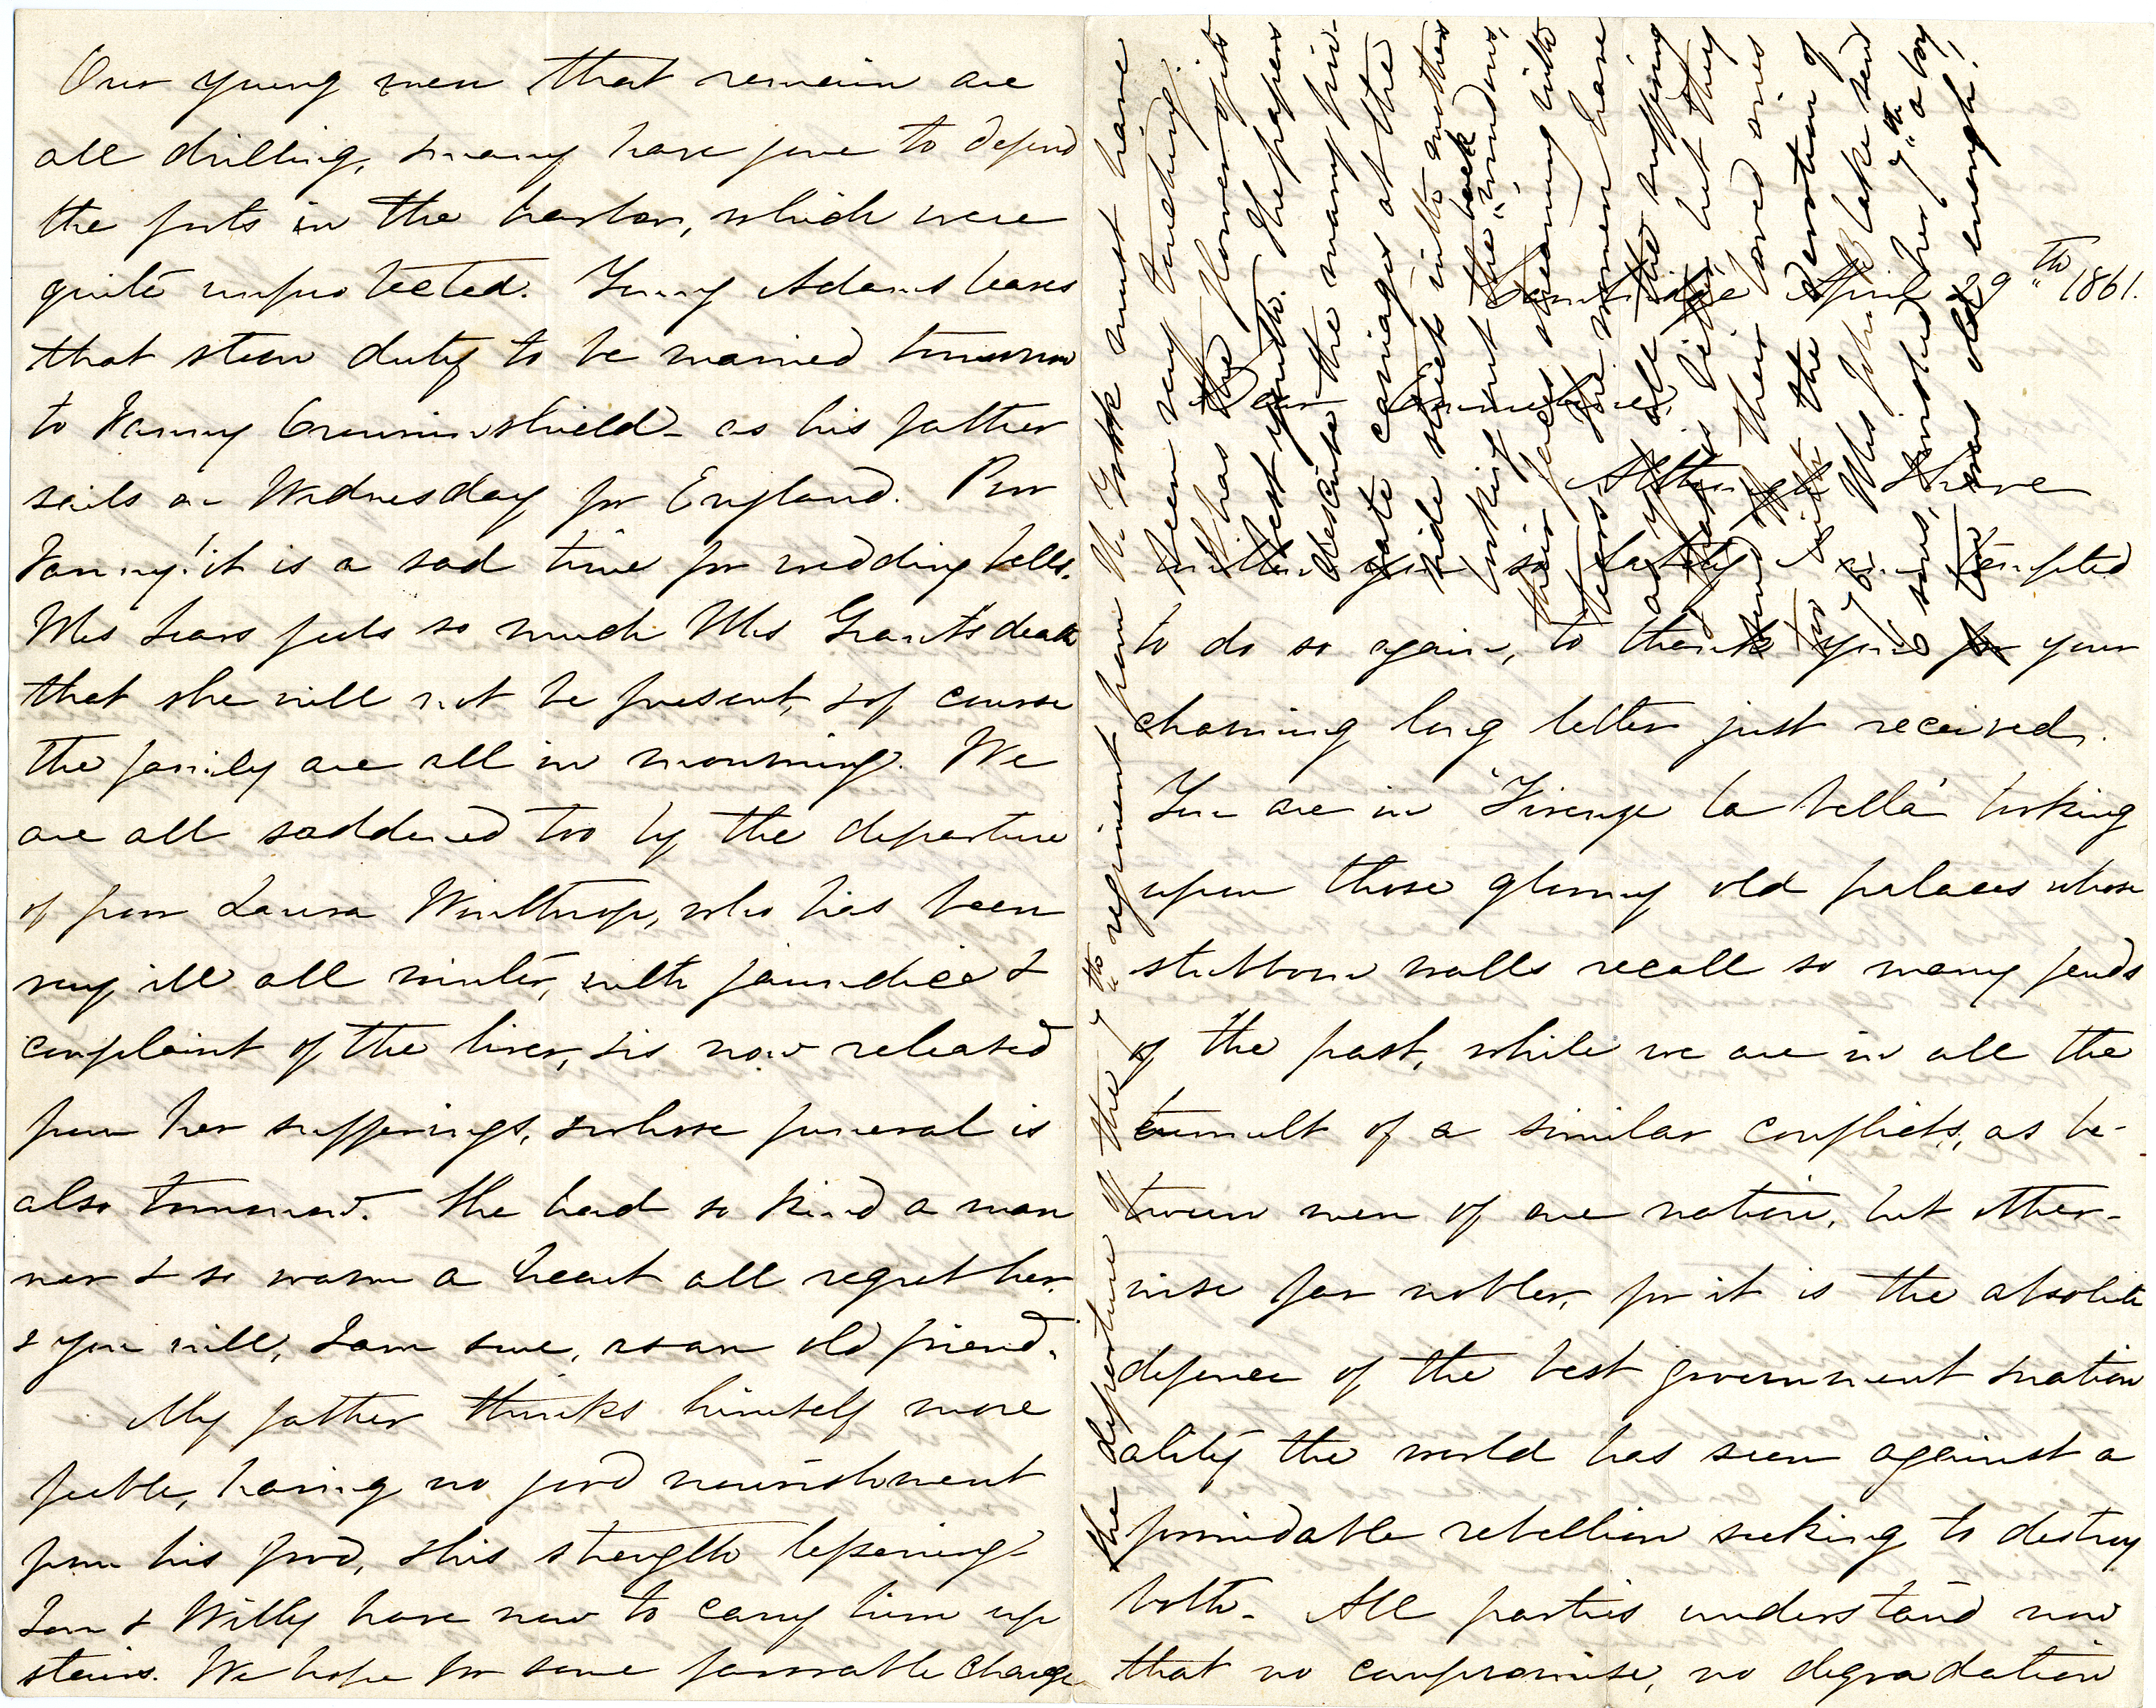 Our young men that remain are
all drilling, & many have gone to defend
the forts in the harbor, which were
quite unprotected. Adams leaves
that stern duty to be married tomorrow
to Fanny Crowninshield - as his father
sails on Wednesday for England. Poor
Fanny! it is a sad time for wedding bells.
Mrs Sears feels so much Mrs Grant's death
that she will not be present, & of course
the family are all in mourning. We
are all saddened too by the departure
of poor Laura Winthrop, who has been
very ill all winter, with jaundice &
complaint of the liver, & is now released
from her sufferings, & whose funeral is
also tomorrow. She had so kind a man
ner & so warm a heart all regret her,
& you will, I am sure, as an old friend.
My father thinks himself more
feeble, having no good nourishment
from his food, & his strength lessening -
Tom & Willy have now to carry him up
stairs. We hope for some favorable change
Cambridge April 29"th 1861.
Dear
Although I have
written you so lately I am tempted
to do so again, to thank you for your
charming long letter just received.
You are in "Firenze la bella" looking
upon those gloomy old palaces whose
stubborn walls recall so many feuds
of the past, while we are in all the
tumult of a similar conflict, as be-
tween men of one nation, but other-
wise far nobler, for it is the absolute
defence of the best government & nation
ality the world has seen against a
formidable rebellion seeking to destroy
both - All parties understand now
that no compromise, no degradation
the departure of the 7"th regiment from N. York must have
been very touching.
It has the flower of its
best youth. The papers
describe the many pri-
vate carriages at the
side street with mothers
looking out the windows, back
their faces streaming with
tears. The women have
as yet all the suffering
& dying little, but they
send their loved ones
forth with the devotion of
Mrs John Lake send
6 sons, & wished her 7"th a boy
too was old enough!